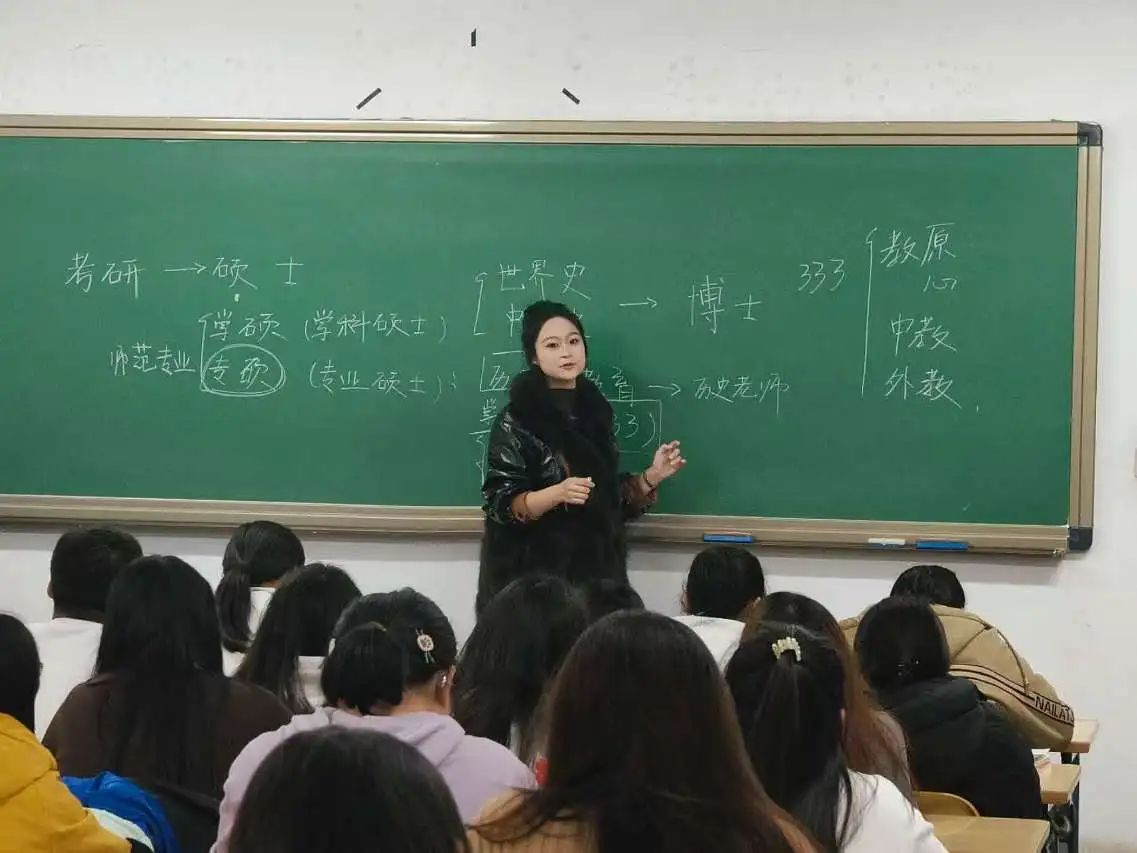 考研 → 硕士
学硕 (学科硕士)
世界史
中
→ 博士
师范专业
专硕 (专业硕士):
历 教育 → 历史老师
333)
333
教原
心
中教
外教
NAILAI